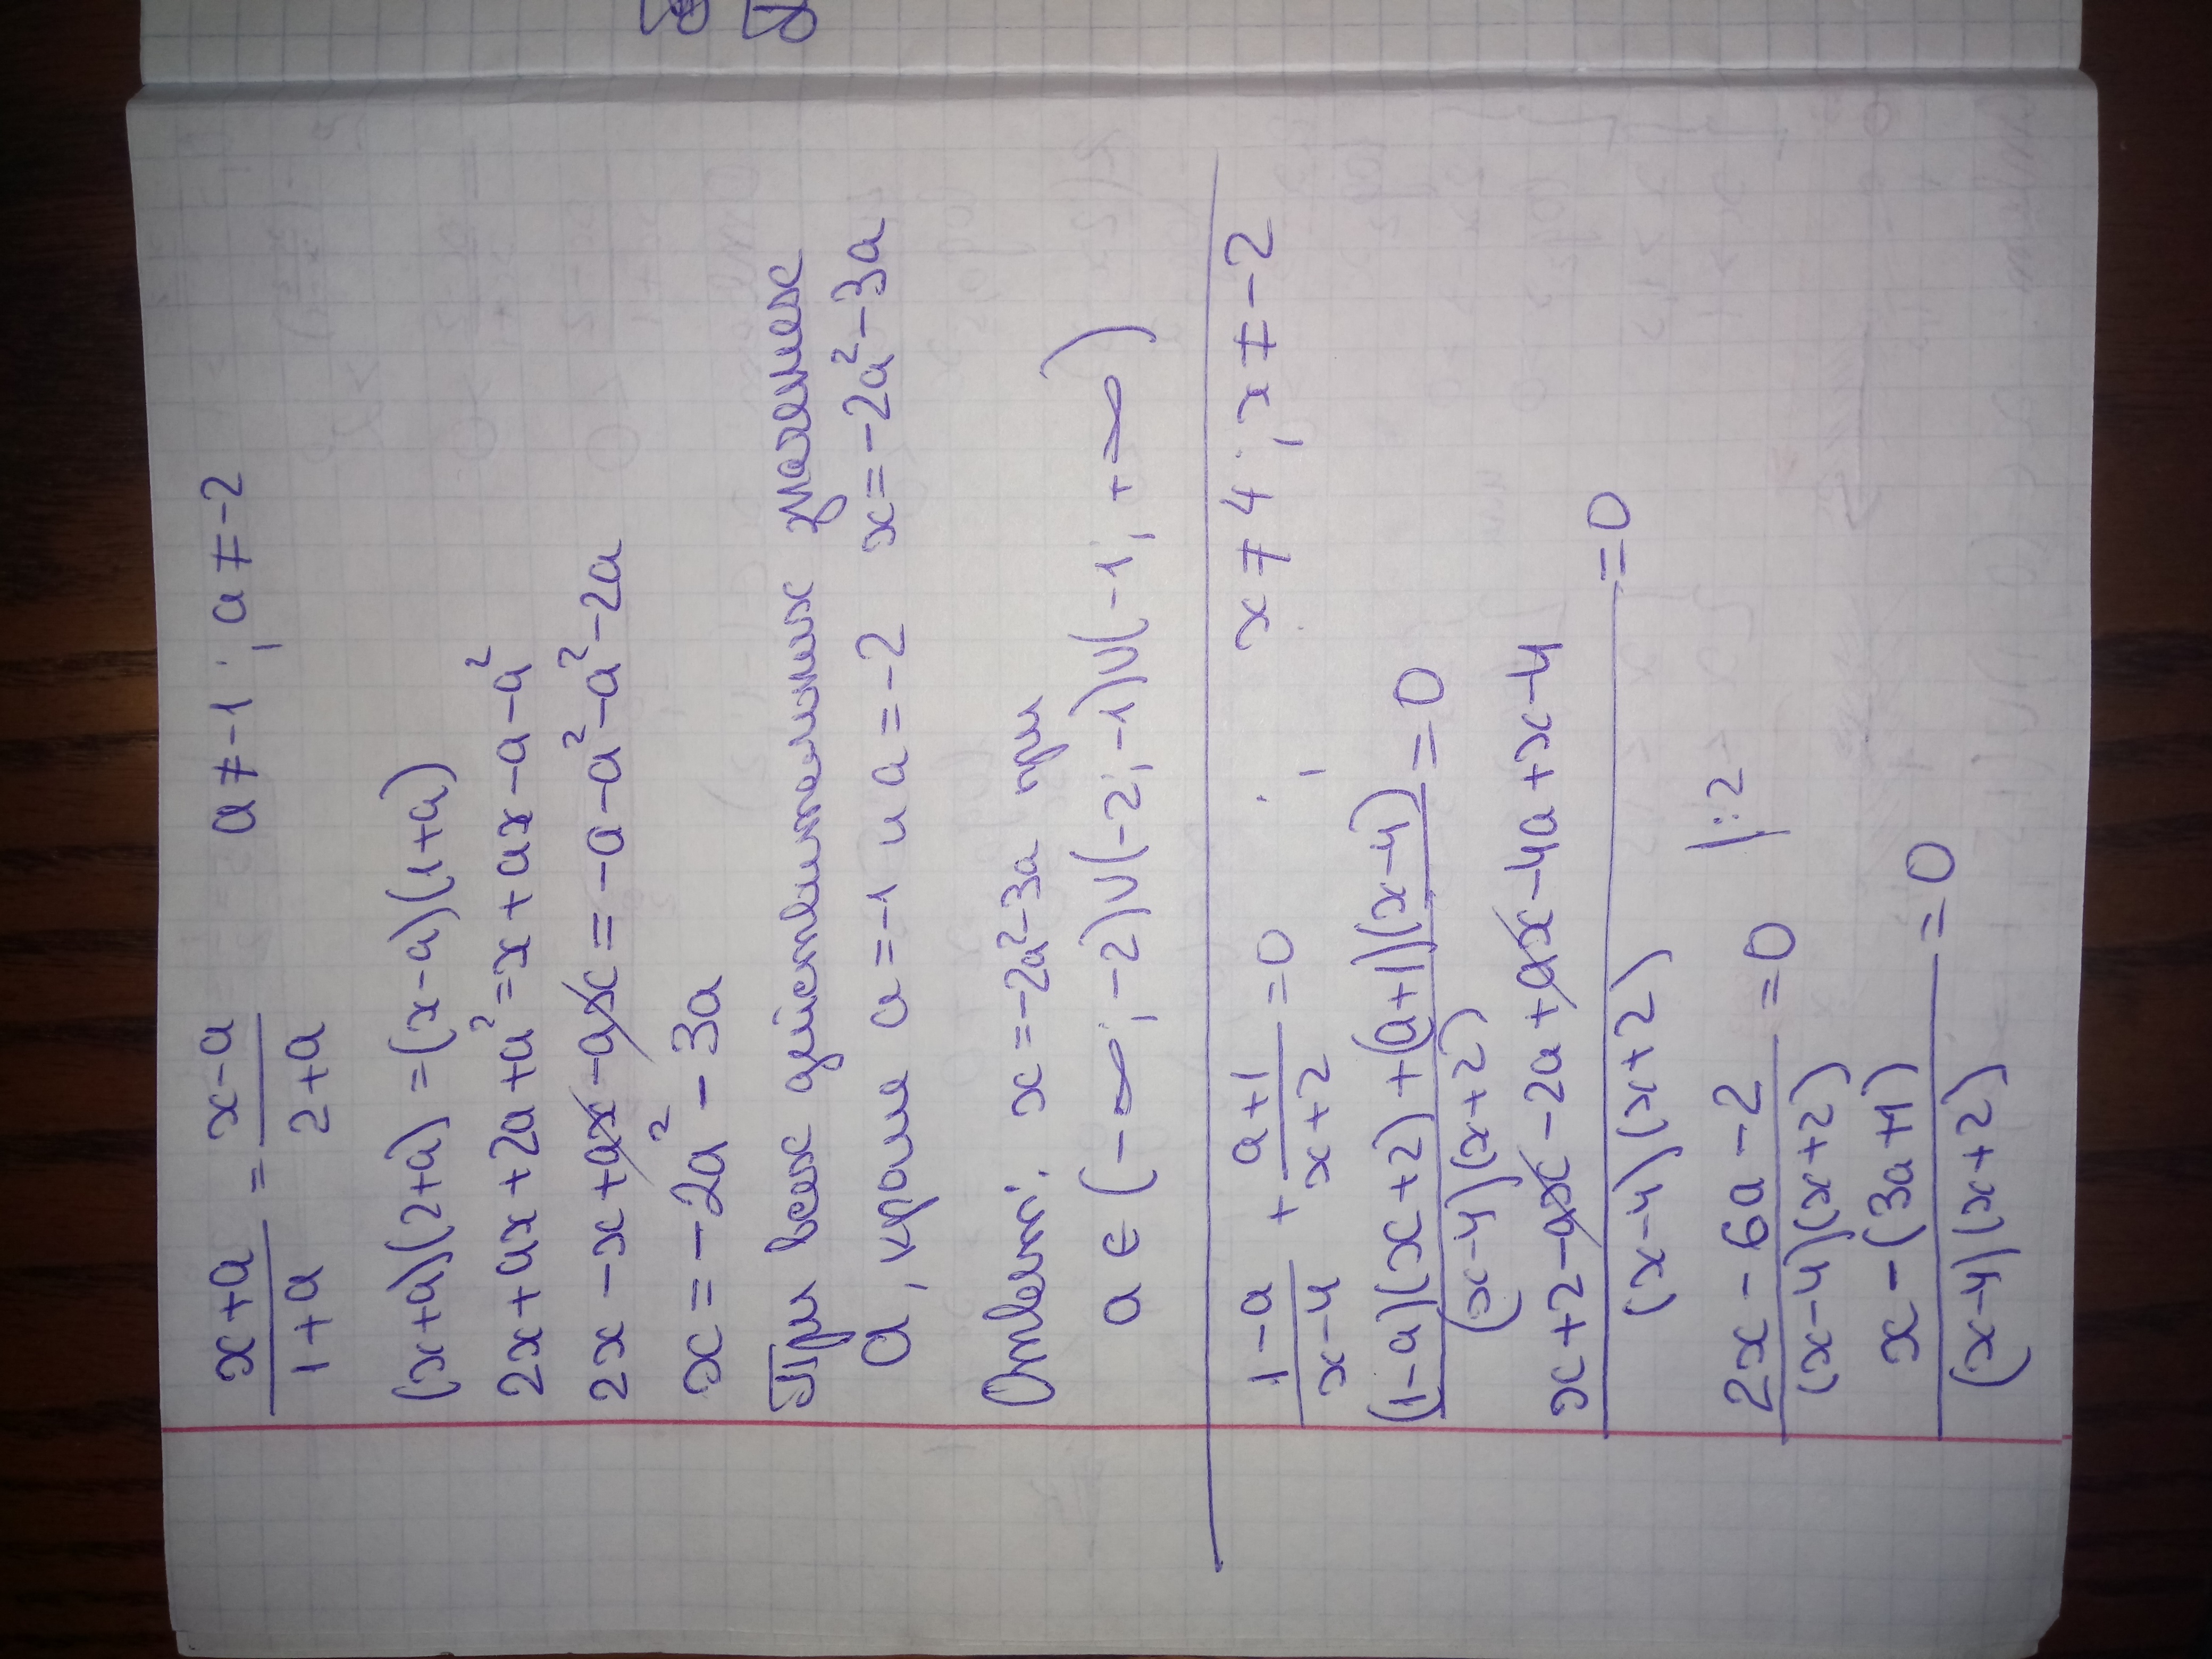 x+a/1+a = x-a/2+a   a≠-1; a≠-2
(x+a)(2+a)=(x-a)(1+a)
2x+ax+2a+a²=x+ax-a-a²
2x-x+ax-ax=-a-a²-a²-2a
x=-2a²-3a
При всех действительных значениях
a, кроме a=-1 и a=-2 x=-2a²-3a
Ответ: x=-2a²-3a при
a∈(-∞;-2)∪(-2;-1)∪(-1;+∞)
1-a/x-4 + a+1/x+2 =0   x≠4; x≠-2
(1-a)(x+2)+(a+1)(x-4)/(x-4)(x+2) =0
x+2-ax-2a+ax-4a+x-4/(x-4)(x+2) =0
2x-6a-2/(x-4)(x+2) =0 |:2
x-(3a+1)/(x-4)(x+2) =0